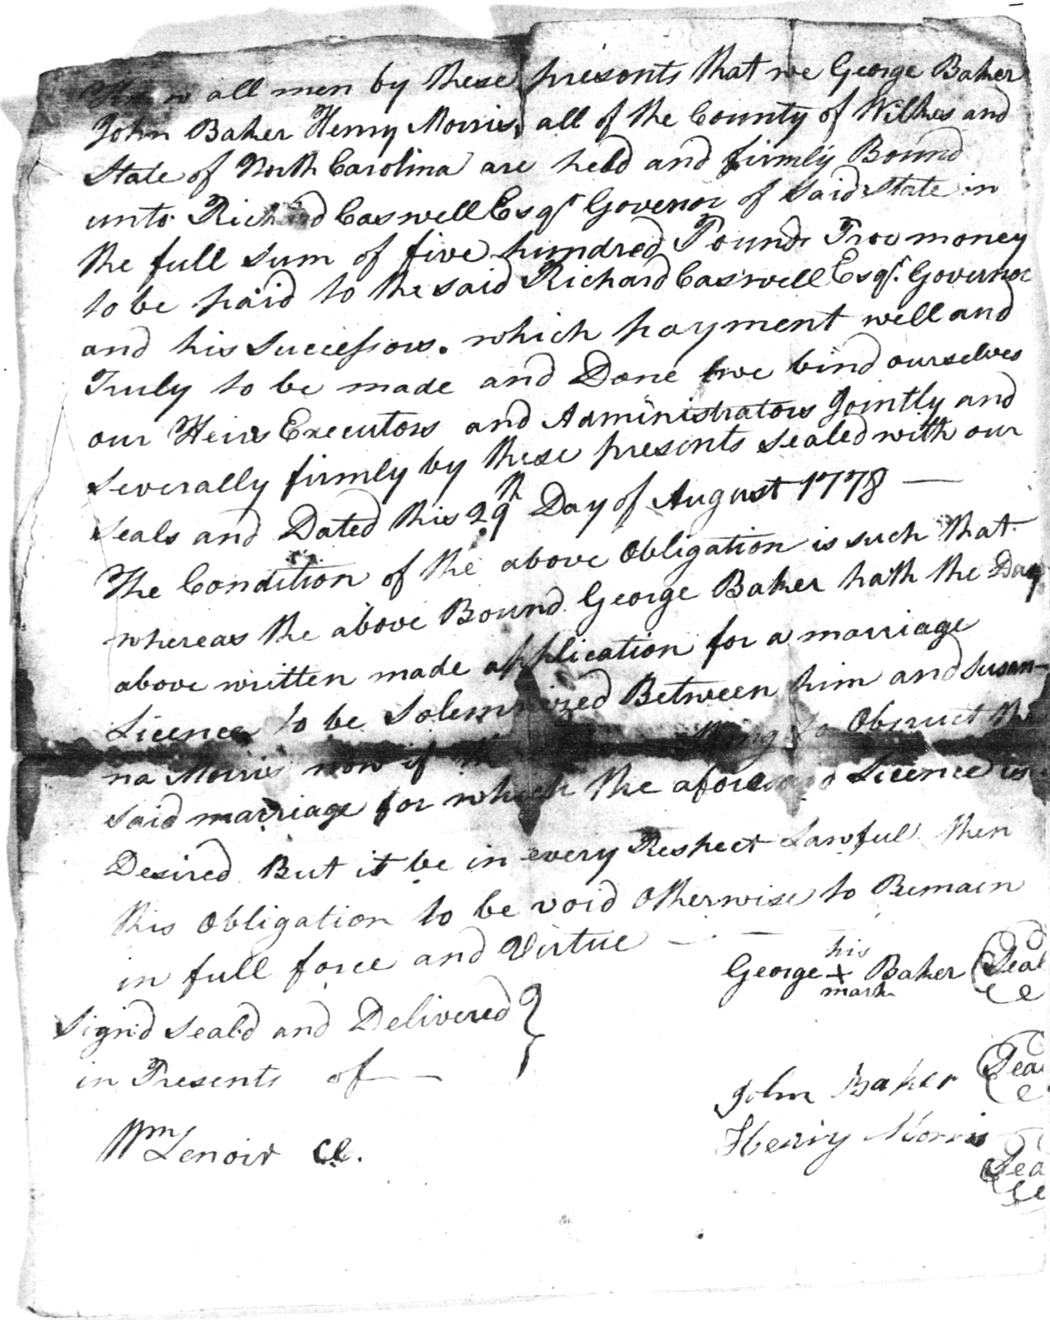 Know all men by these presents that we George Baker
John Baker Henry Morris, all of the County of Wilkes and
State of North Carolina are held and firmly Bound
unto Richard Caswell Esqr Governor of Said State in
the full Sum of five hundred Pounds Proc money
to be paid to the said Richard Caswell Esqr. Governor
and his Successors. which payment well and
Truly to be made and Done we bind ourselves
our Heirs Executors and Administrators Jointly and
Severally firmly by these presents sealed with our
Seals and Dated this 29th Day of August 1778 —
The Condition of the above Obligation is such that
whereas the above Bound George Baker hath the Day
above written made application for a marriage
Licence to be Solemnized Between him and Susan-
na Morris now if thing to Obstruct the
said marriage for which the aforesaid Licence is
Desired But it be in every Respect Lawful then
this Obligation to be void Otherwise to Remain
in full force and Virtue — —
George his + mark Baker Seal
Sign'd Seal'd and Delivered }
in Presents of —
John Baker Sea
Henry Morris Sea
Wm Lenoir CC.